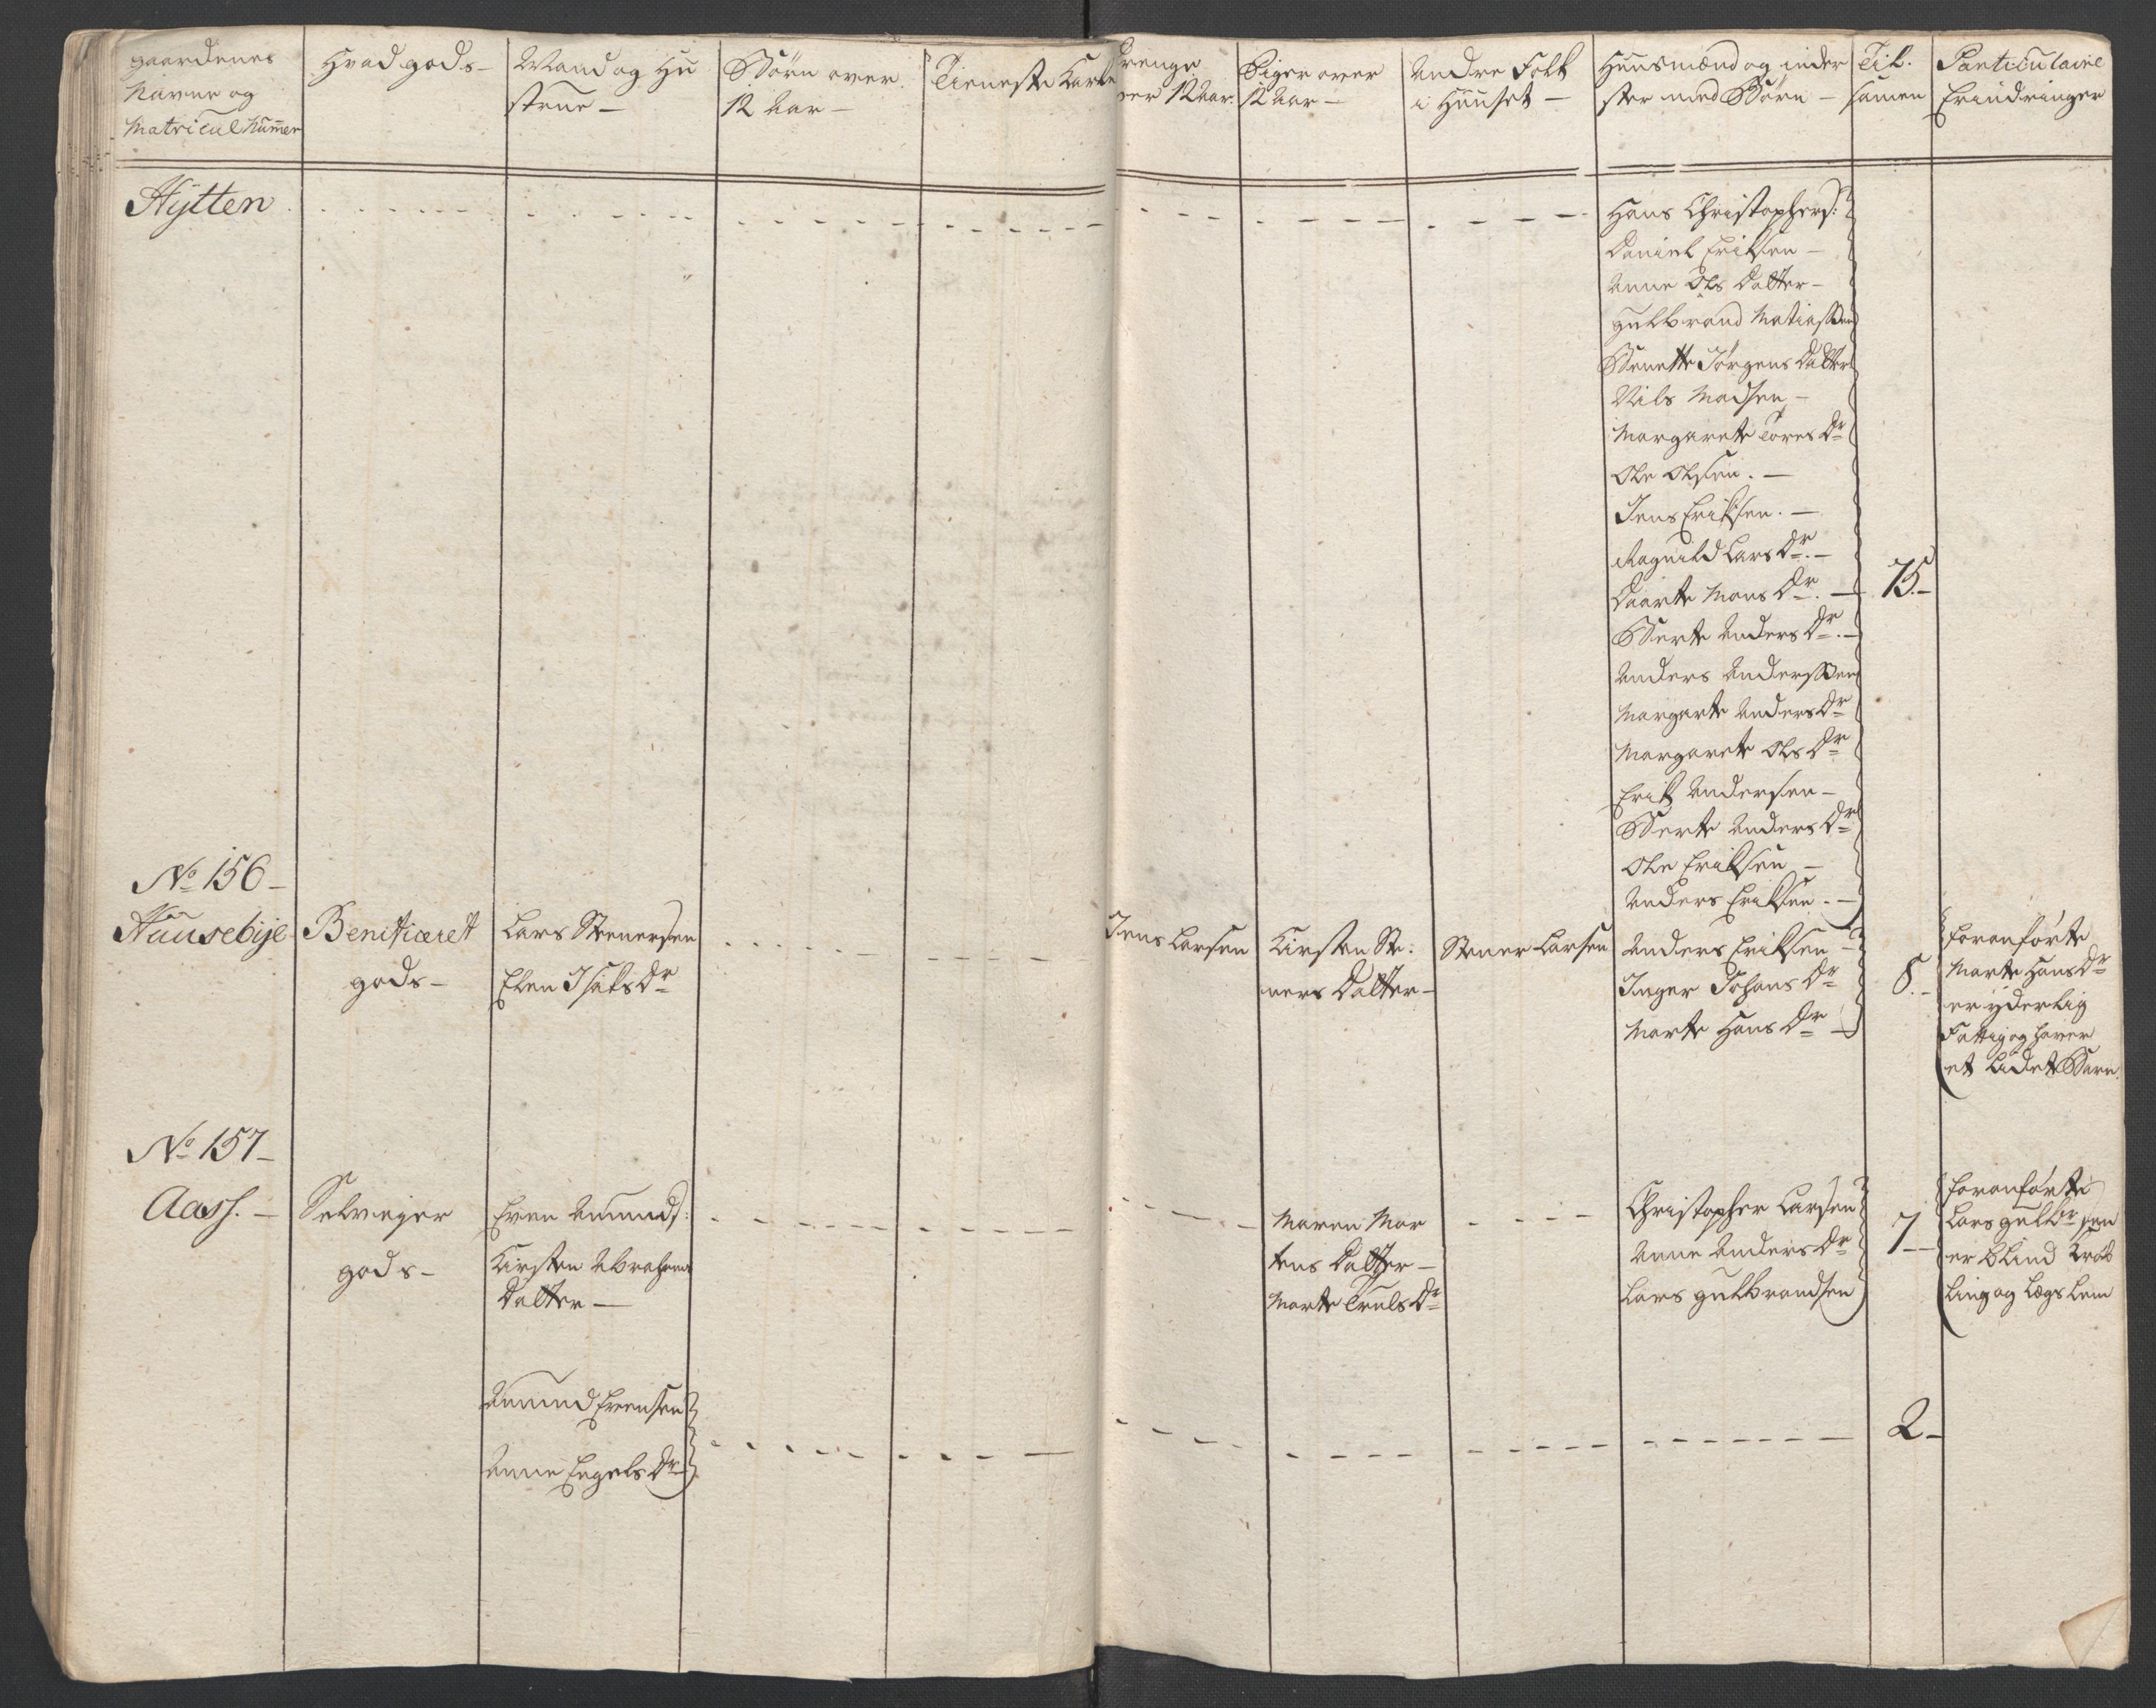 gaardenes
Navne og
Matricul Numer
Hvad gods
Mand og Hu
strue
Børn over
12 Aar
Tieneste Karle
Drenge
over 12 Aar
Piger over
12 Aar
Andre Folk
i Huuset
Huusmænd og inder
ster med Børn
Til
samen
Particulaire
Erindringer
Hytten
Hans Christophers:
Daniel Eriksen
Anne Ols Datter
Gulbrand Matiassen
Benette Jørgens Datter
Nils Madsen
Margarete Tores Dr
Ole Olsen
Jens Eriksen
Ragnild Lars Dr
Daarte Mons Dr
75
Berte Anders Dr
Anders Anderssen
Margarte Anders Dr
Margarete Ols Dr
Erik Andersen
Berte Anders Dr
Ole Eriksen
Anders Eriksen
No 156
Huusebye
Benificeret
gods
Lars Stenersen
Elen Isaks Dr
Jens Larsen
Kirsten Ste:
ners Datter
Stener Larsen
Anders Eriksen
Inger Johans Dr
Marte Hans Dr
8
foranførte
Marte Hans Dr
er yderlig
Fattig og haver
et lidet Barn
No 157
Aass
Selveyer
gods
Even Amunds:
Kirsten Abrahams
Datter
Maren Mor
tens Datter
Marte Truls Dr
Christopher Larsen
Anne Anders Dr
Lars Gulbrandsen
7
foranførte
Lars Gulbrsen
er blind Krøb
ling og Lægs Lem
Amund Evensen
Anne Engels Dr
2